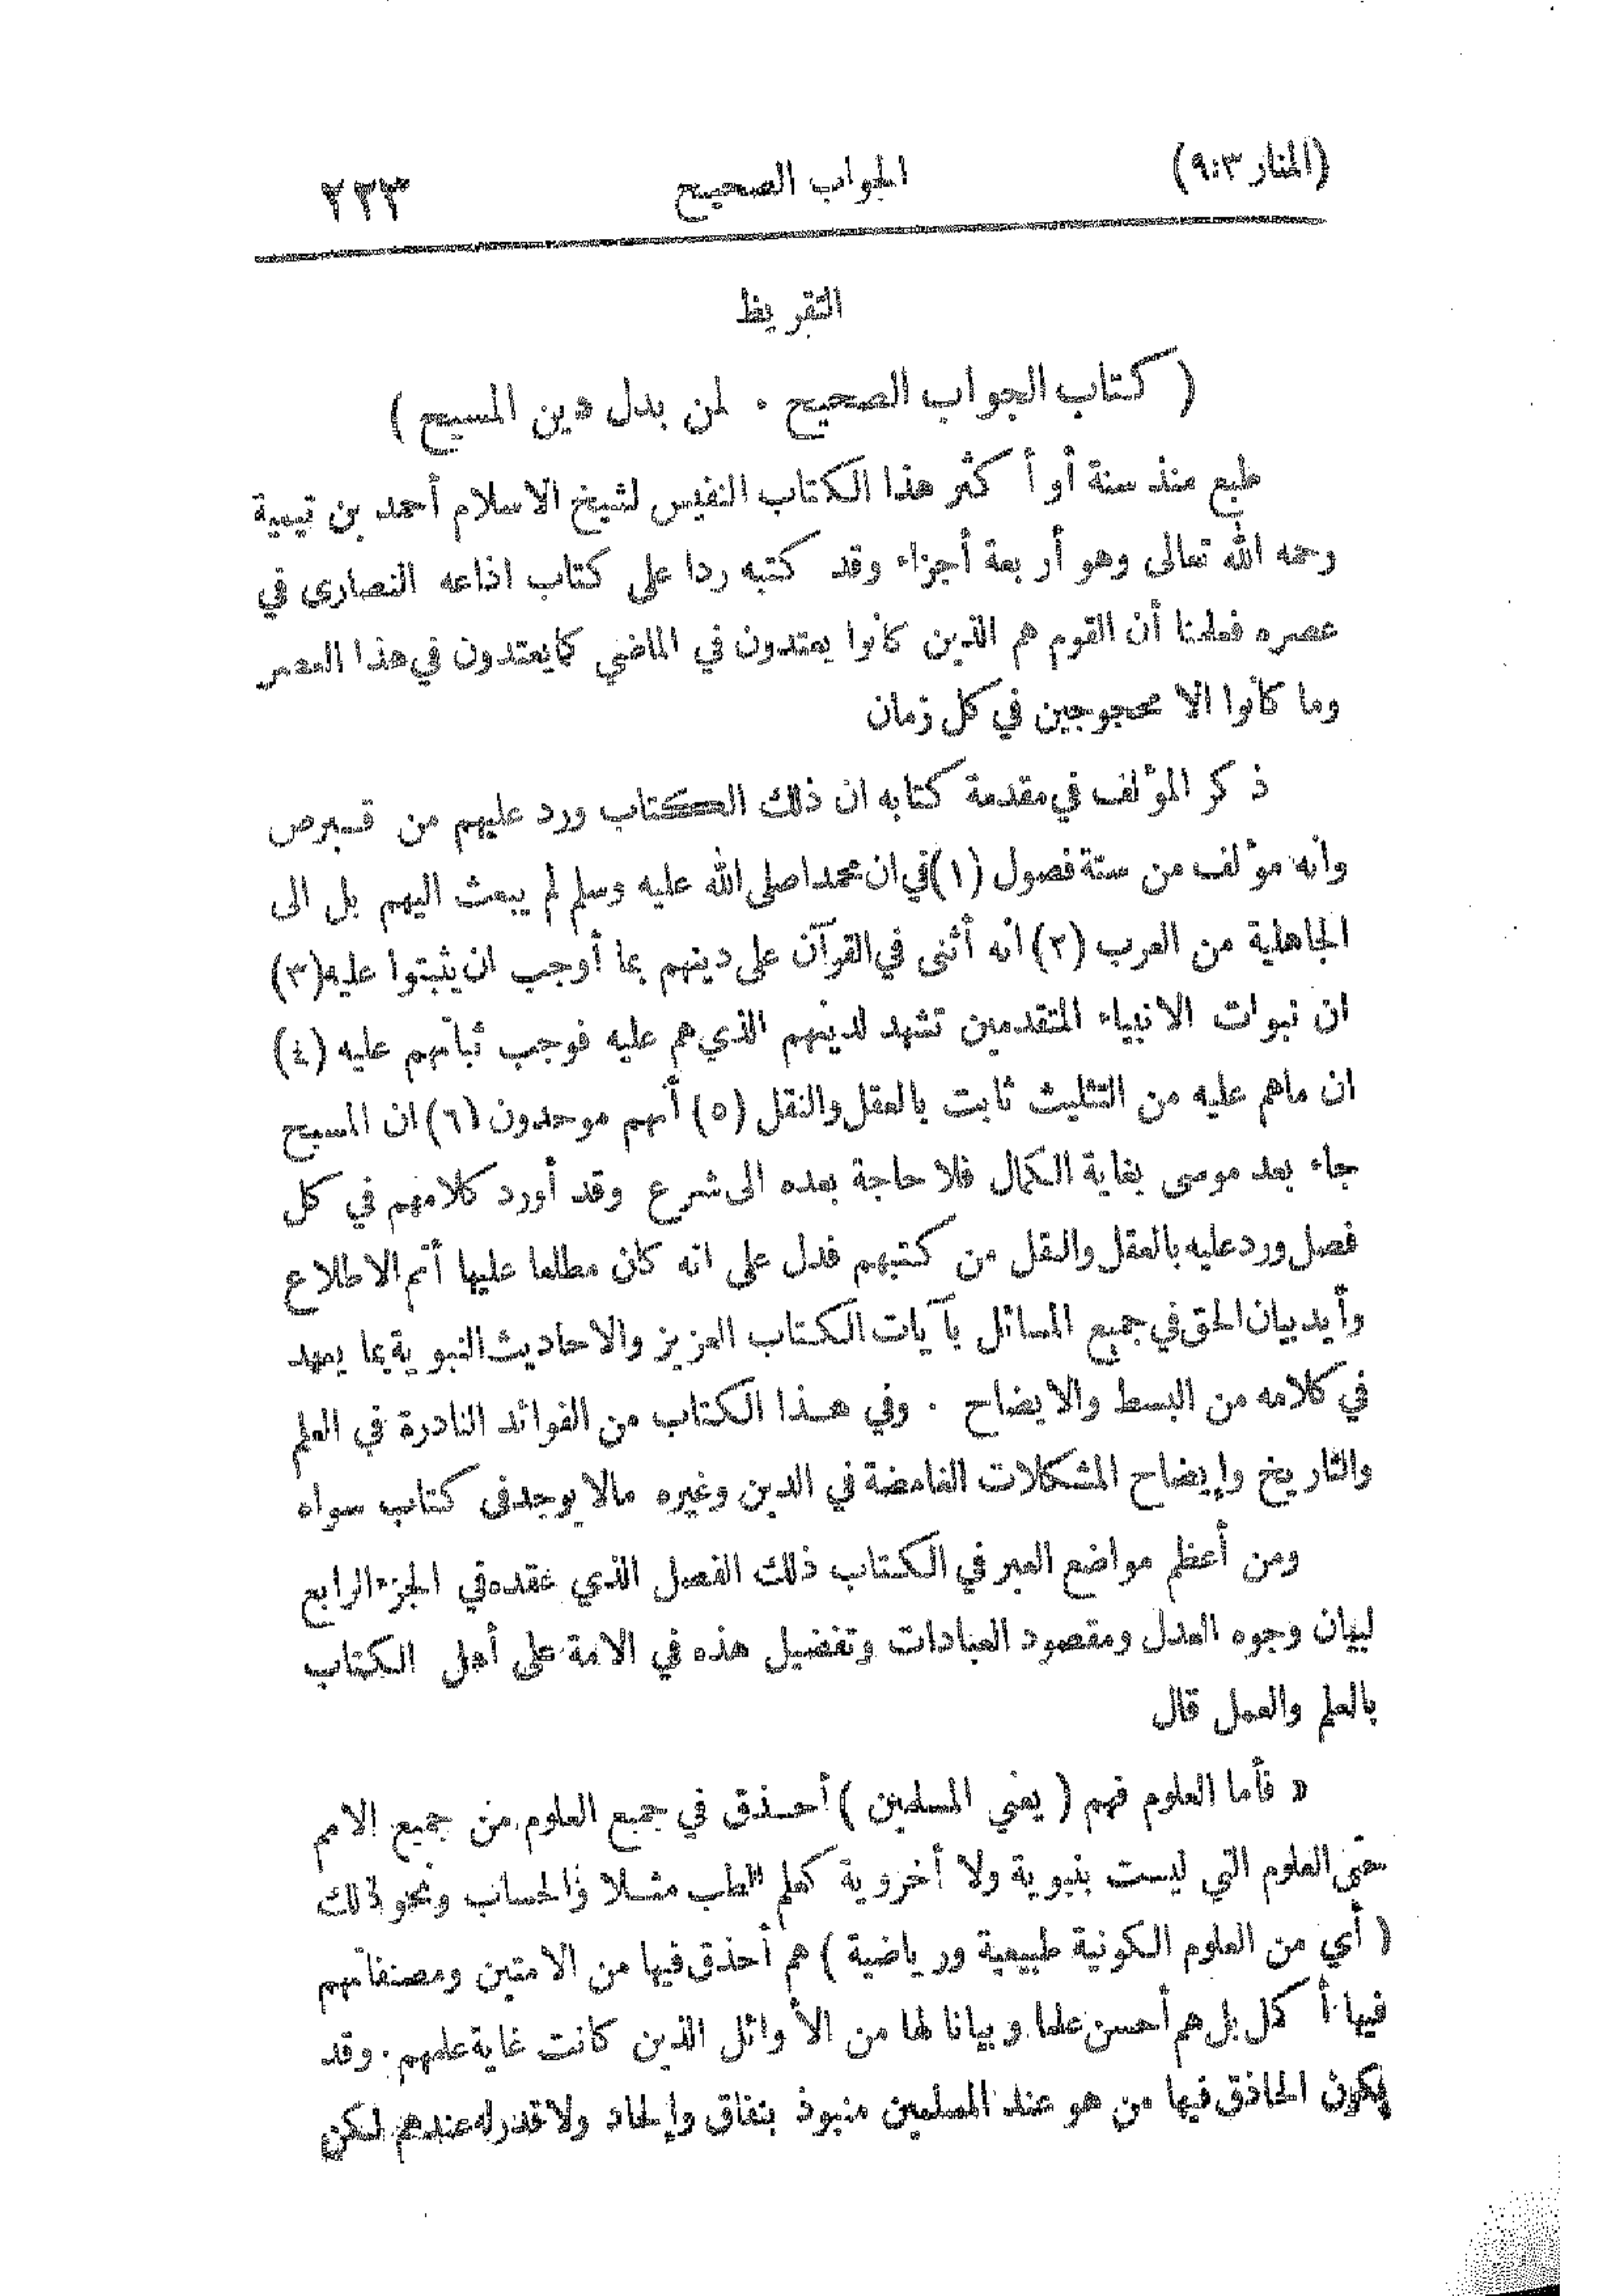 (المنار ٩:٣)
الجواب الصحيح
٢٣٣
التقريظ
( كتاب الجواب الصحيح . لمن بدل دين المسيح )
طبع منذ سنة أو أكثر هذا الكتاب النفيس لشيخ الاسلام أحمد بن تيمية
رحمه الله تعالى وهو أربعة أجزاء وقد كتبه ردا على كتاب اذاعه النصارى في
عصره فعلمنا أن القوم هم الذين كانوا يعتدون في الماضي كما يعتدون في هذا العصر
وما كانوا الا محجوجين في كل زمان
ذكر المؤلف في مقدمة كتابه ان ذلك الكتاب ورد عليهم من قبرص
وانه مؤلف من ستة فصول (١) في ان محمدا صلى الله عليه وسلم لم يبعث اليهم بل الى
الجاهلية من العرب (٢) أنه أثنى في القرآن على دينهم بما أوجب ان يثبتوا عليه (٣)
ان نبوات الانبياء المتقدمين تشهد لدينهم الذي هم عليه فوجب ثباتهم عليه (٤)
ان ماهم عليه من التثليث ثابت بالعقل والنقل (٥) أنهم موحدون (٦) ان المسيح
جاء بعد موسى بغاية الكمال فلا حاجة بعده الى شرع وقد أورد كلامهم في كل
فصل ورد عليه بالعقل والنقل من كتبهم فدل على انه كان مطلعا عليها أتم الاطلاع
وأيد بيان الحق في جميع المسائل بآيات الكتاب العزيز والاحاديث النبوية بما يعهد
في كلامه من البسط والايضاح . وفي هذا الكتاب من الفوائد النادرة في العلم
والتاريخ وإيضاح المشكلات الغامضة في الدين وغيره مالا يوجد في كتاب سواه
ومن أعظم مواضع العبر في الكتاب ذلك الفصل الذي عقده في الجزء الرابع
لبيان وجوه العدل ومقصود العبادات وتفضيل هذه في الامة على أهل الكتاب
بالعلم والعمل قال
« فأما العلوم فهم ( يعني المسلمين ) أحذق في جميع العلوم من جميع الامم
حتى العلوم التي ليست بنبوية ولا أخروية كعلم الطب مثلا والحساب ونحو ذلك
( أي من العلوم الكونية طبيعية ورياضية ) هم أحذق فيها من الامتين ومصنفاتهم
فيها أكمل بل هم أحسن علما وبيانا لها من الأوائل الذين كانت غاية علمهم . وقد
يكون الحاذق فيها من هو عند المسلمين منبوذ بنفاق وإلحاد ولا قدر له عندهم لكن